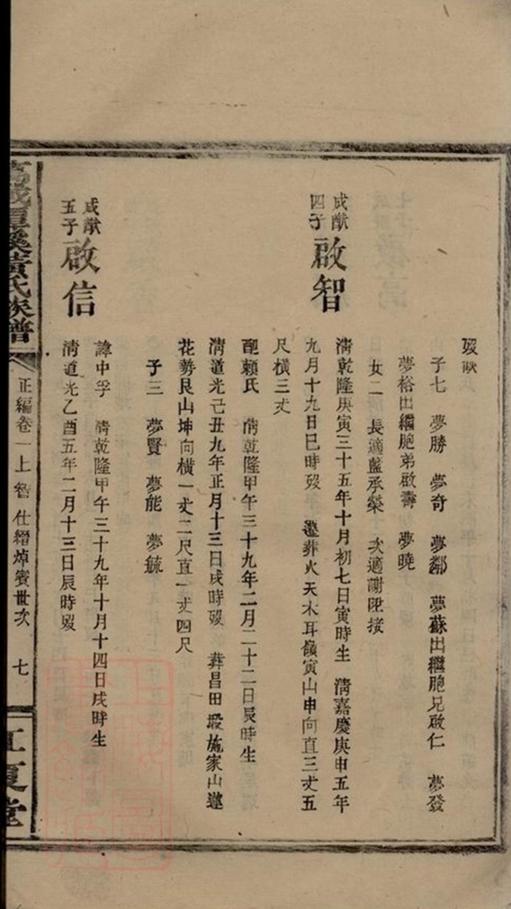 歿缺
子七　夢勝　夢奇　夢鄰　夢蘇出繼胞兄啟仁　夢發
夢裕出繼胞弟啟壽　夢曉
女二　長適藍承榮　次適謝陞接
成猷四子　啟智
清乾隆庚寅三十五年十月初七日寅時生　清嘉慶庚申五年
九月十九日巳時歿　葬火天木耳嶺寅山申向直三丈五
尺橫三丈
配賴氏　清乾隆甲午三十九年二月二十二日辰時生
清道光己丑九年正月十三日戌時歿　葬昌田塅施家山遂
花勢艮山坤向橫一丈二尺直一丈四尺
子三　夢賢　夢能　夢毓
成猷五子　啟信
諱中孚　清乾隆甲午三十九年十月十四日戌時生
清道光乙酉五年二月十三日辰時歿
溪黃氏族譜
正編卷一上　智　仕縉焯賓世次　七
江夏堂